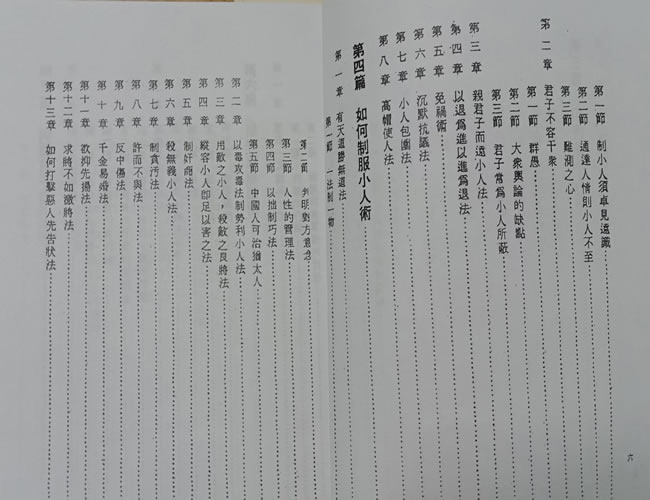 第一節 制小人須卓見遠識
第二節 通達人情則小人不至
第三節 難測之心
第二章 君子不容干衆
第一節 群愚
第二節 大衆輿論的缺點
第三節 君子常爲小人所蔽
第三章 親君子而遠小人法
第四章 以退爲進以進爲退法
第五章 免禍術
第六章 沉默抗議法
第七章 小人包圍法
第八章 高帽使人法
第四篇 如何制服小人術
第一章 有天道勝無道法
第一節 一法制一物
六
第二節 判明對方意念
第三節 人性的管理法
第四節 以拙制巧法
第五節 中國人可治猶太人
第二章 以毒攻毒法制勢利小人法
第三章 用敵之小人，殺敵之良將法
第四章 縱容小人即足以害之法
第五章 制奸商法
第六章 殺無義小人法
第七章 制貪污法
第八章 許而不與法
第九章 反中傷法
第十章 千金易婚法
第十一章 欲抑先揚法
第十二章 求將不如激將法
第十三章 如何打擊惡人先告狀法